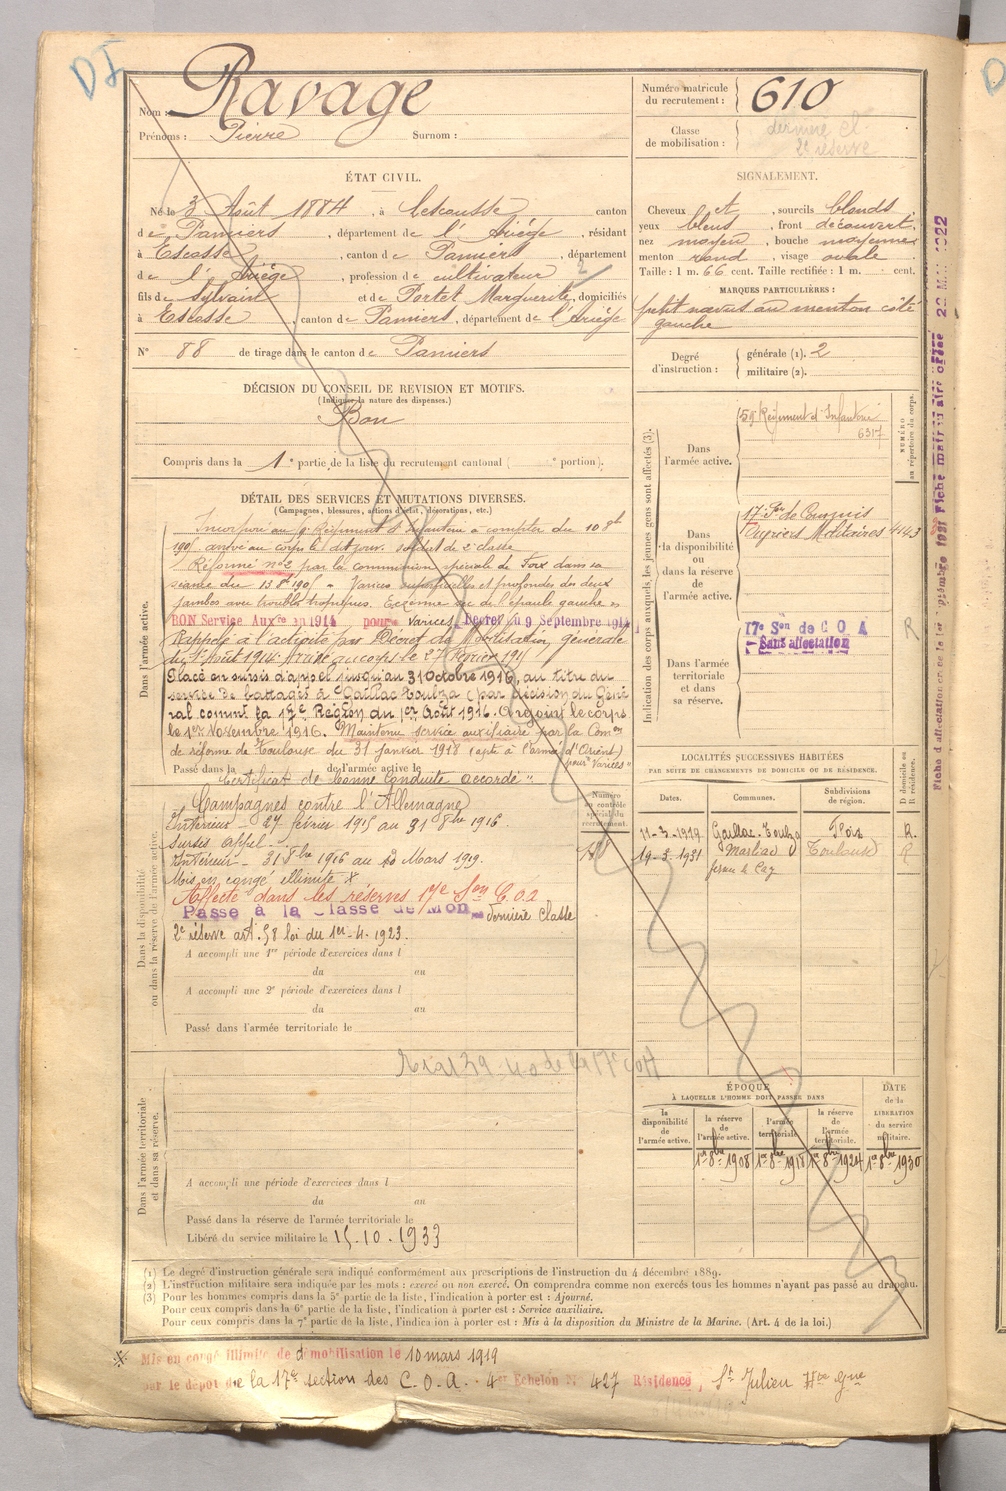 DI
Nom : Ravage
Prénoms : Pierre Surnom :
Numéro matricule du recrutement : 610
Classe de mobilisation : dernière cl
2e réserve
ÉTAT CIVIL.
Né le 3 Août 1884, à Lescousse canton
de Pamiers, département de l'Ariège, résidant
à Escosse, canton de Pamiers, département
de l'Ariège, profession de cultivateur 2
fils de Sylvain et de Portet Marguerite, domiciliés
à Escosse, canton de Pamiers, département de l'Ariège
N° 88 de tirage dans le canton de Pamiers
SIGNALEMENT.
Cheveux et, sourcils blonds,
yeux bleus, front découvert,
nez moyen, bouche moyenne
menton rond, visage ovale
Taille : 1 m. 66 cent. Taille rectifiée : 1 m. cent.
MARQUES PARTICULIÈRES :
petit nævus au menton côté
gauche
Degré d'instruction : générale (1). 2
militaire (2).
DÉCISION DU CONSEIL DE REVISION ET MOTIFS.
(Indiquer la nature des dispenses.)
Bon
Compris dans la 1e partie de la liste du recrutement cantonal ( e portion).
DÉTAIL DES SERVICES ET MUTATIONS DIVERSES.
(Campagnes, blessures, actions d'éclat, décorations, etc.)
Dans l'armée active.
Incorporé au Régiment d'Infanterie à compter du 10 8bre
arrivé au corps le dit jour. soldat de 2e classe
Réformé n°2 par la commission spéciale de Foix dans sa
séance du 13 8bre 1905 Varices superficielles et profondes des deux
jambes avec troubles trophiques. de l'épaule gauche
BON Service Auxre en 1914 pour Varices Décret du 9 Septembre 1914
Rappelé à l'activité par Décret de Mobilisation générale
du 1er Août 1914. Arrivé au corps le 27 Février 1915
Placé en sursis d'appel jusqu'au 31 Octobre 1916, au titre du
service de battages à Gaillac-Toulza (par décision du Géné
ral commt la 17e Région du 1er Août 1916. le corps
le 1er Novembre 1916. Maintenu service auxiliaire par la Comon
de réforme de Toulouse du 31 janvier 1918 (apte à l'armée d'Orient)
pour "Varices"
Passé dans la de l'armée active le
Certificat de bonne Conduite accordé".
Indication des corps auxquels les jeunes gens sont affectés (3).
NUMÉRO au répertoire du corps.
Dans l'armée active. 59e Régiment d'Infanterie
6317
Dans la disponibilité ou dans la réserve de l'armée active.
17e Son de Commis
Ouvriers Militaires 4443
Dans l'armée territoriale et dans sa réserve.
17e Son de C O A R
Sans affectation
Fiche matricule 22 Mai 1922
Dans la disponibilité ou dans la réserve de l'armée active.
Numéro au contrôle spécial du recrutement.
Campagnes contre l'Allemagne
Intérieur - 27 février 1915 au 31 8bre 1916.
Sursis appel
Intérieur - 31 8bre 1916 au 13 Mars 1919.
Mis en congé illimité X
Affecté dans les réserves 17e Son C.O.A
Passé à la Classe de Mon dernière classe
2e réserve art. 58 loi du 1er-4. 1923.
A accompli une 1re période d'exercices dans l
du au
A accompli une 2e période d'exercices dans l
du au
Passé dans l'armée territoriale le
LOCALITÉS SUCCESSIVES HABITÉES
PAR SUITE DE CHANGEMENTS DE DOMICILE OU DE RÉSIDENCE.
Dates. Communes. Subdivisions de région. D domicile ou R résidence.
11-3-1919 Gaillac-Toulza Foix R.
19-3-1931 Marliac Toulouse R
Dans l'armée territoriale et dans sa réserve.
A accompli une période d'exercices dans l
du au
Passé dans la réserve de l'armée territoriale le
Libéré du service militaire le 15.10.1933
ÉPOQUE
À LAQUELLE L'HOMME DOIT PASSER DANS
la disponibilité de l'armée active. la réserve de l'armée active. l'armée territoriale. la réserve de l'armée territoriale. DATE de la LIBÉRATION du service militaire.
1er 8bre 1908 1er 8bre 1918 1er 8bre 1924 1er 8bre 1930
(1) Le degré d'instruction générale sera indiqué conformément aux prescriptions de l'instruction du 4 décembre 1889.
(2) L'instruction militaire sera indiquée par les mots : exercé ou non exercé. On comprendra comme non exercés tous les hommes n'ayant pas passé au drapeau.
(3) Pour les hommes compris dans la 5e partie de la liste, l'indication à porter est : Ajourné.
Pour ceux compris dans la 6e partie de la liste, l'indication à porter est : Service auxiliaire.
Pour ceux compris dans la 7e partie de la liste, l'indication à porter est : Mis à la disposition du Ministre de la Marine. (Art. 4 de la loi.)
X Mis en congé illimité de démobilisation le 10 mars 1919
par le dépôt de la 17e section des C.O.A. 4e Echelon N° 427 Résidence, St Julien Hte Gne